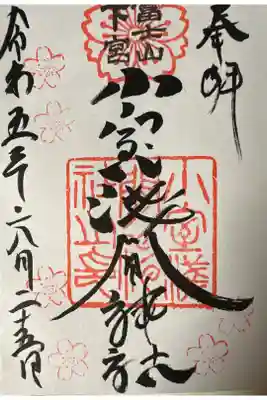 奉拝
富士山
下宮
小室浅間神社
小室浅
間神
社之印
令和五年
月二十五日